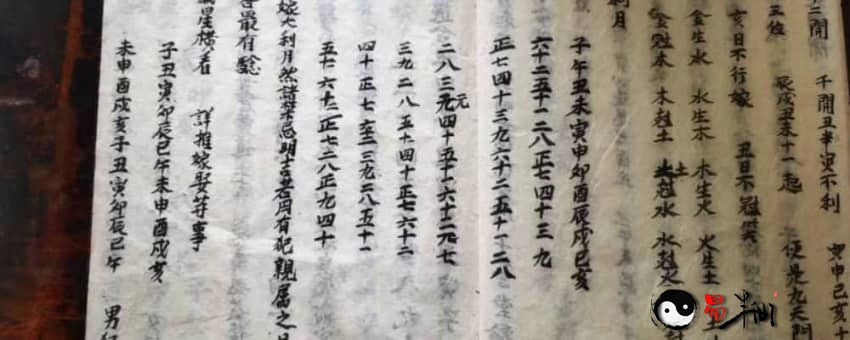 寅申巳亥十
二開 千開丑年寅不利
三位 辰戌丑未十一起 便是九天門
亥日不行嫁 丑日不冠笄
金生水 水生木 木生火 火生土
金尅木 木尅土 土尅水 水尅火
利月
子午丑未寅申卯酉辰戌巳亥
六十二五十一二八正七四十三九
正七四十三九六十二五十一二八
二八三九四十五十一六十二正七
三九二八五十一四十正七六十二
四十正七六十二三九二八五十一
五十一六十二正七二八三九四十
嫁七利月然諸禁忌明吉若周有犯親屬之
最有驗
星橫看 詳推嫁娶等事
子丑寅卯辰巳午未申酉戌亥
未申酉戌亥子丑寅卯辰巳午 男
易半仙